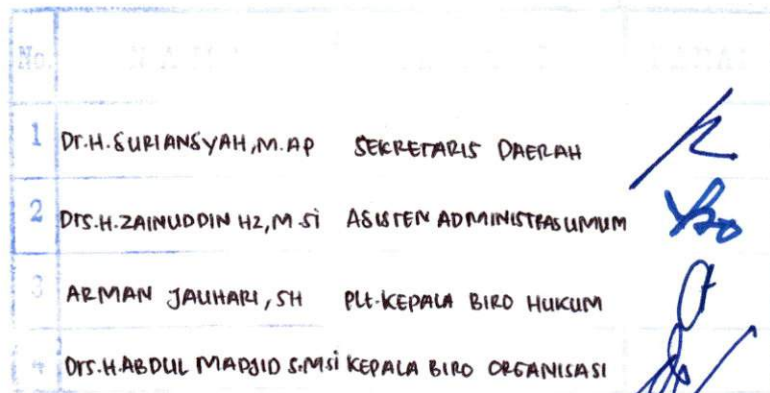 No.
1 Dr.H.SURIANSYAH,M.AP SEKRETARIS DAERAH
2 Drs.H.ZAINUDDIN HZ,M.Si ASISTEN ADMINISTRASUMUM
3 ARMAN JAUHARI, SH PLt.KEPALA BIRO HUKUM
4 Drs.H.ABDUL MADJID S.MSi KEPALA BIRO ORGANISASI